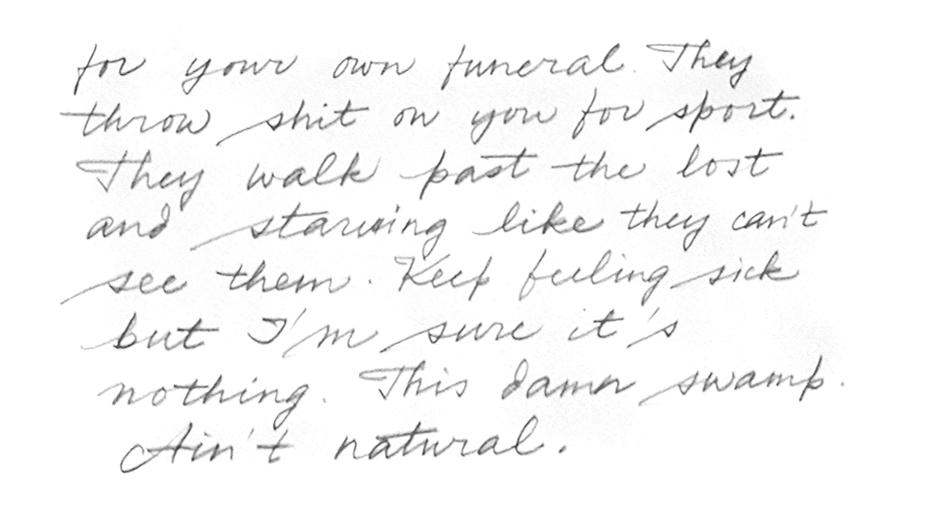 for your own funeral. They
throw shit on you for sport.
They walk past the lost
and starving like they can't
see them. Keep feeling sick
but I'm sure it's
nothing. This damn swamp.
Ain't natural.